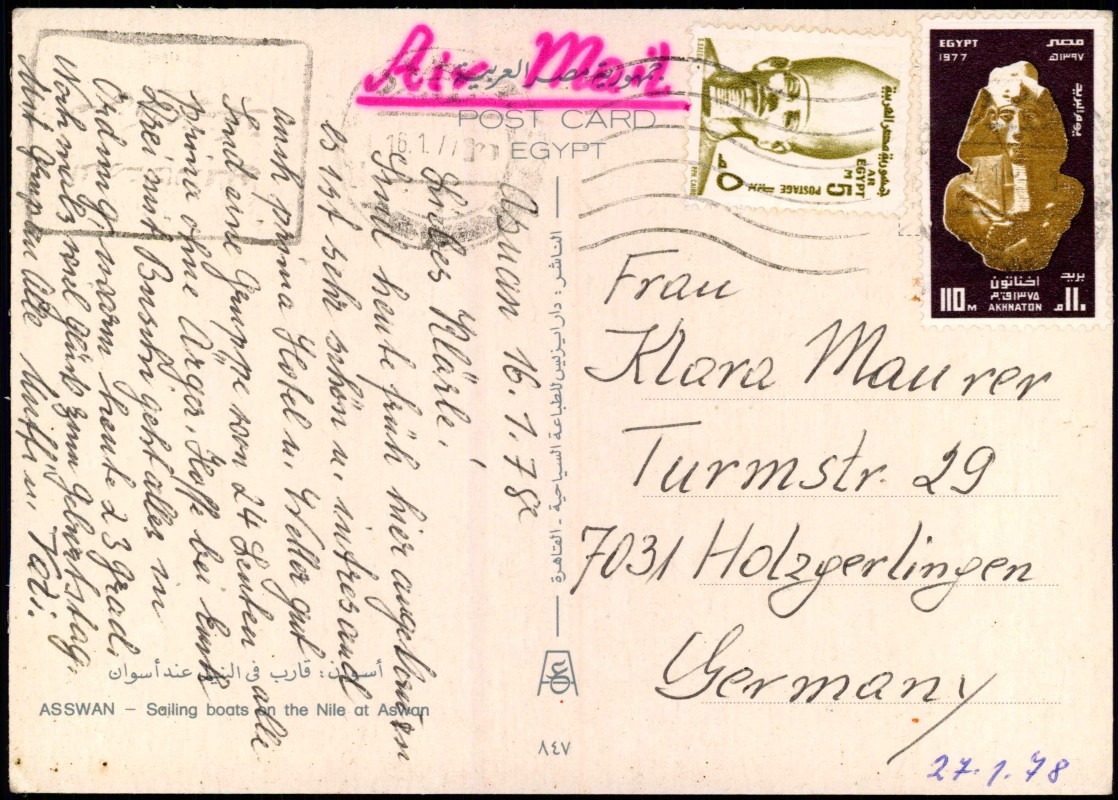 Air Mail
جمهورية مصر العربية
POST CARD
EGYPT
16.1.77
جمهورية مصر العربية
AR
EGYPT
M 5
POSTAGE
٥ م
EGYPT
1977
مصر
١٣٩٧هـ
يوم البريد
بريد
اخناتون
١٣٧٥ق.م
AKHNATON
110 M
١١٠ م
Asuan 16.1.78
Liebes Klärle,
Sind heute früh hier angekommen
es ist sehr schön u. interessant
auch prima Hotel u. Wetter gut
Sind eine Gruppe von 24 Leuten alle
prima ohne Ärger. Hoffe bei Euch
Drei mit Bussen ist alles in
Ordnung. warm heute 23 Grad.
Nochmals viel Glück zum Geburtstag.
Mutti u.
الناشر: دار ايزيس للطباعة السياحية - القاهرة
Frau
Klara Maurer
Turmstr. 29
7031 Holzgerlingen
Germany
أسوان: قارب فى النيل عند أسوان
ASSWAN – Sailing boats on the Nile at Aswan
٨٤٧
27.1.78